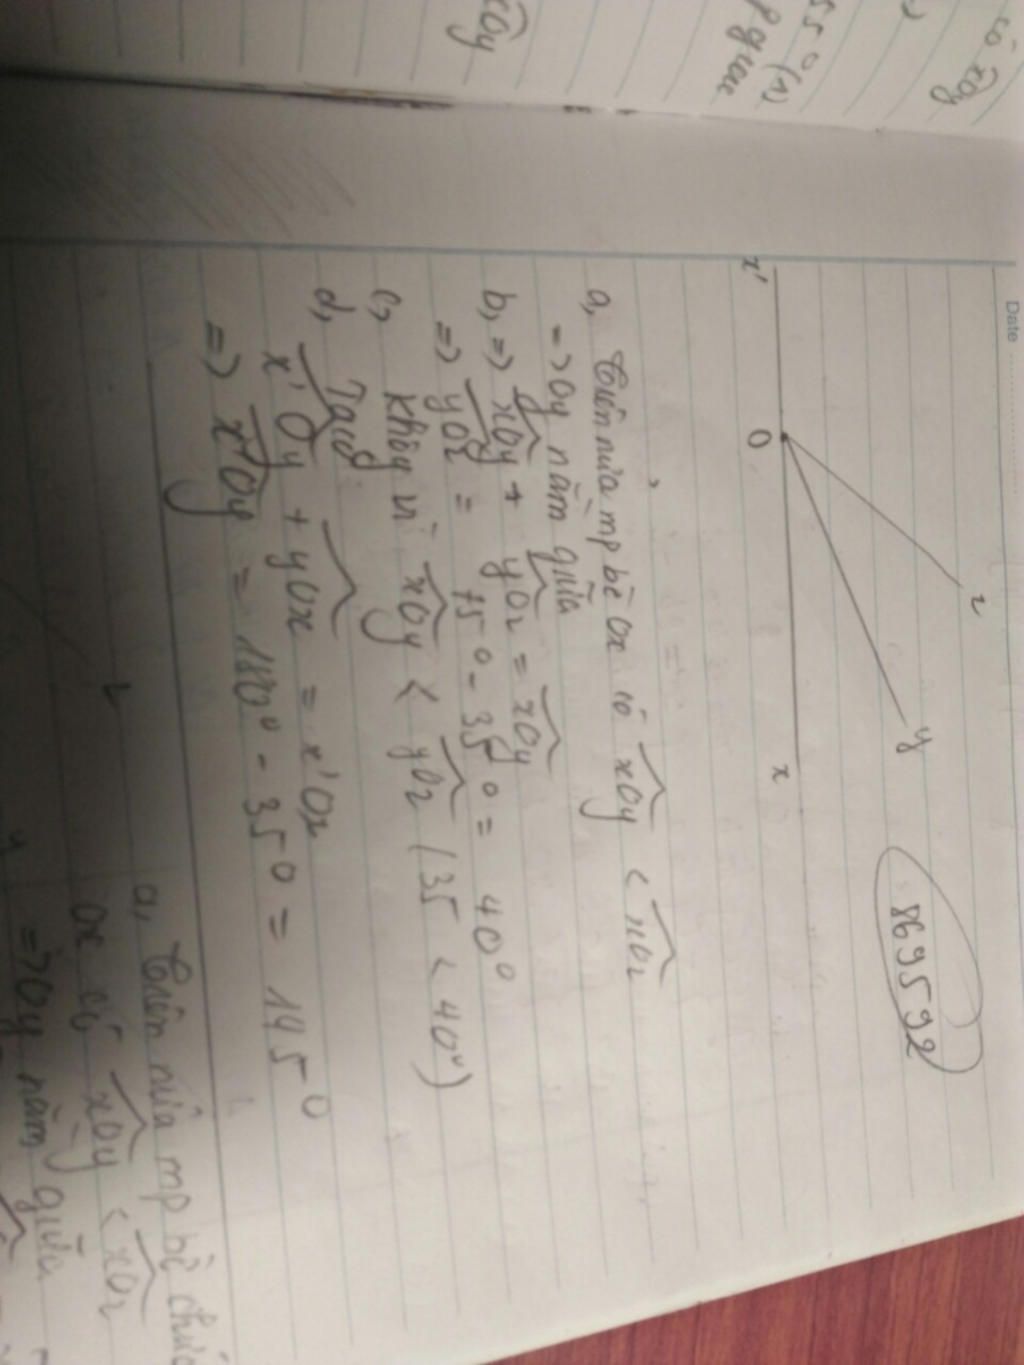 có xOy
55° (1)
xOy
Date
x'
O
x
y
z
869592
a, Trên nửa mp bờ Ox có xOy < xOz
=> Oy nằm giữa
b, => xOy + yOz = xOy
=> yOz = 75° - 35° = 40°
c, không vì xOy < yOz (35 < 40°)
d, Ta có
x'Oy + yOx = x'Ox
=> x'Oy = 180° - 35° = 145°
z
y
a, Trên nửa mp bờ chứa
Ox có xOy < xOz
=> Oy nằm giữa